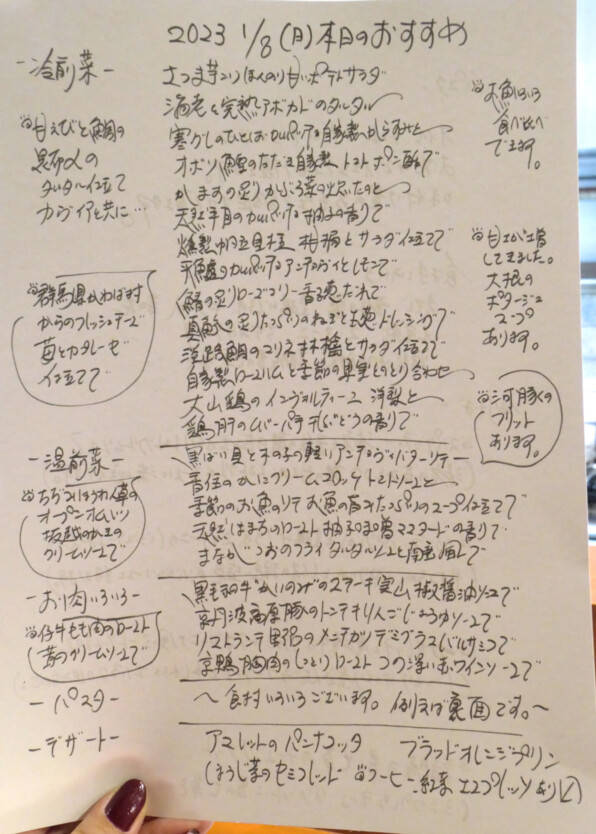 2023 1/8(月)本日のおすすめ
-冷前菜-
さつま芋のほんのり甘いポテトサラダ
海老と完熟アボカドのタルタル
寒ぐしのひとはカルパッチョ自家製からすみと
オボソ鰹のたたき自家製トマトポン酢で
かますの炙りかぶら菜の炊いたのと
天然平目のカルパッチョ柚子の香りで
燻製帆立貝柱 柑橘とサラダ仕立てで
カルパッチョアンチョヴィとレモンで
鯖の炙りローズマリー香るたれで
真鯛の炙りたっぷりのねぎとドレッシングで
淡路鯛のマリネ林檎とサラダ仕立て
自家製ロースハムと季節の果実とのとり合わせ
大山鶏のインヴォルティーニ 洋梨と
鶏肝のムースパテ ぶどうの香りで
甘えびと鯛の
昆布〆の
タルタル仕立て
カヴィアと共に…
群馬県かわば村
からのフレッシュチーズ
苺とカプレーゼ
仕立てで
お魚いろいろ
食べ比べ
できます。
してきました。
大根の
ポタージュ
スープ
あります。
河豚の
フリット
あります。
-温前菜-
黒ばい貝ときの子の軽いアンチョヴィバターソテー
香住のかにクリームコロッケトマトソースと
季節のお魚のソテーお魚の旨みたっぷりのスープ仕立てで
天然はまちのロースト柚子マスタードの香りで
まながつおのフライタルタルソースと南蛮風で
ちぢみほうれん草の
オープンオムレツ
坂越のかきの
クリームソースで
-お肉いろいろ-
黒毛和牛"かいのみ"のステーキ実山椒醤油ソースで
京丹波高原豚のトンテキりんごじょうゆソースで
リストランテ野呂のメンチカツデミグラスバルサミコで
京鴨胸肉のしっとりローストつの深い赤ワインソースで
仔牛もも肉のロースト
クリームソースで
-パスタ-
〜食材いろいろございます。例えば裏面です。〜
-デザート-
アマレットのパンナコッタ ブラッドオレンジプリン
ほうじ茶のセミフレッド コーヒー、紅茶 エスプレッソあり〼